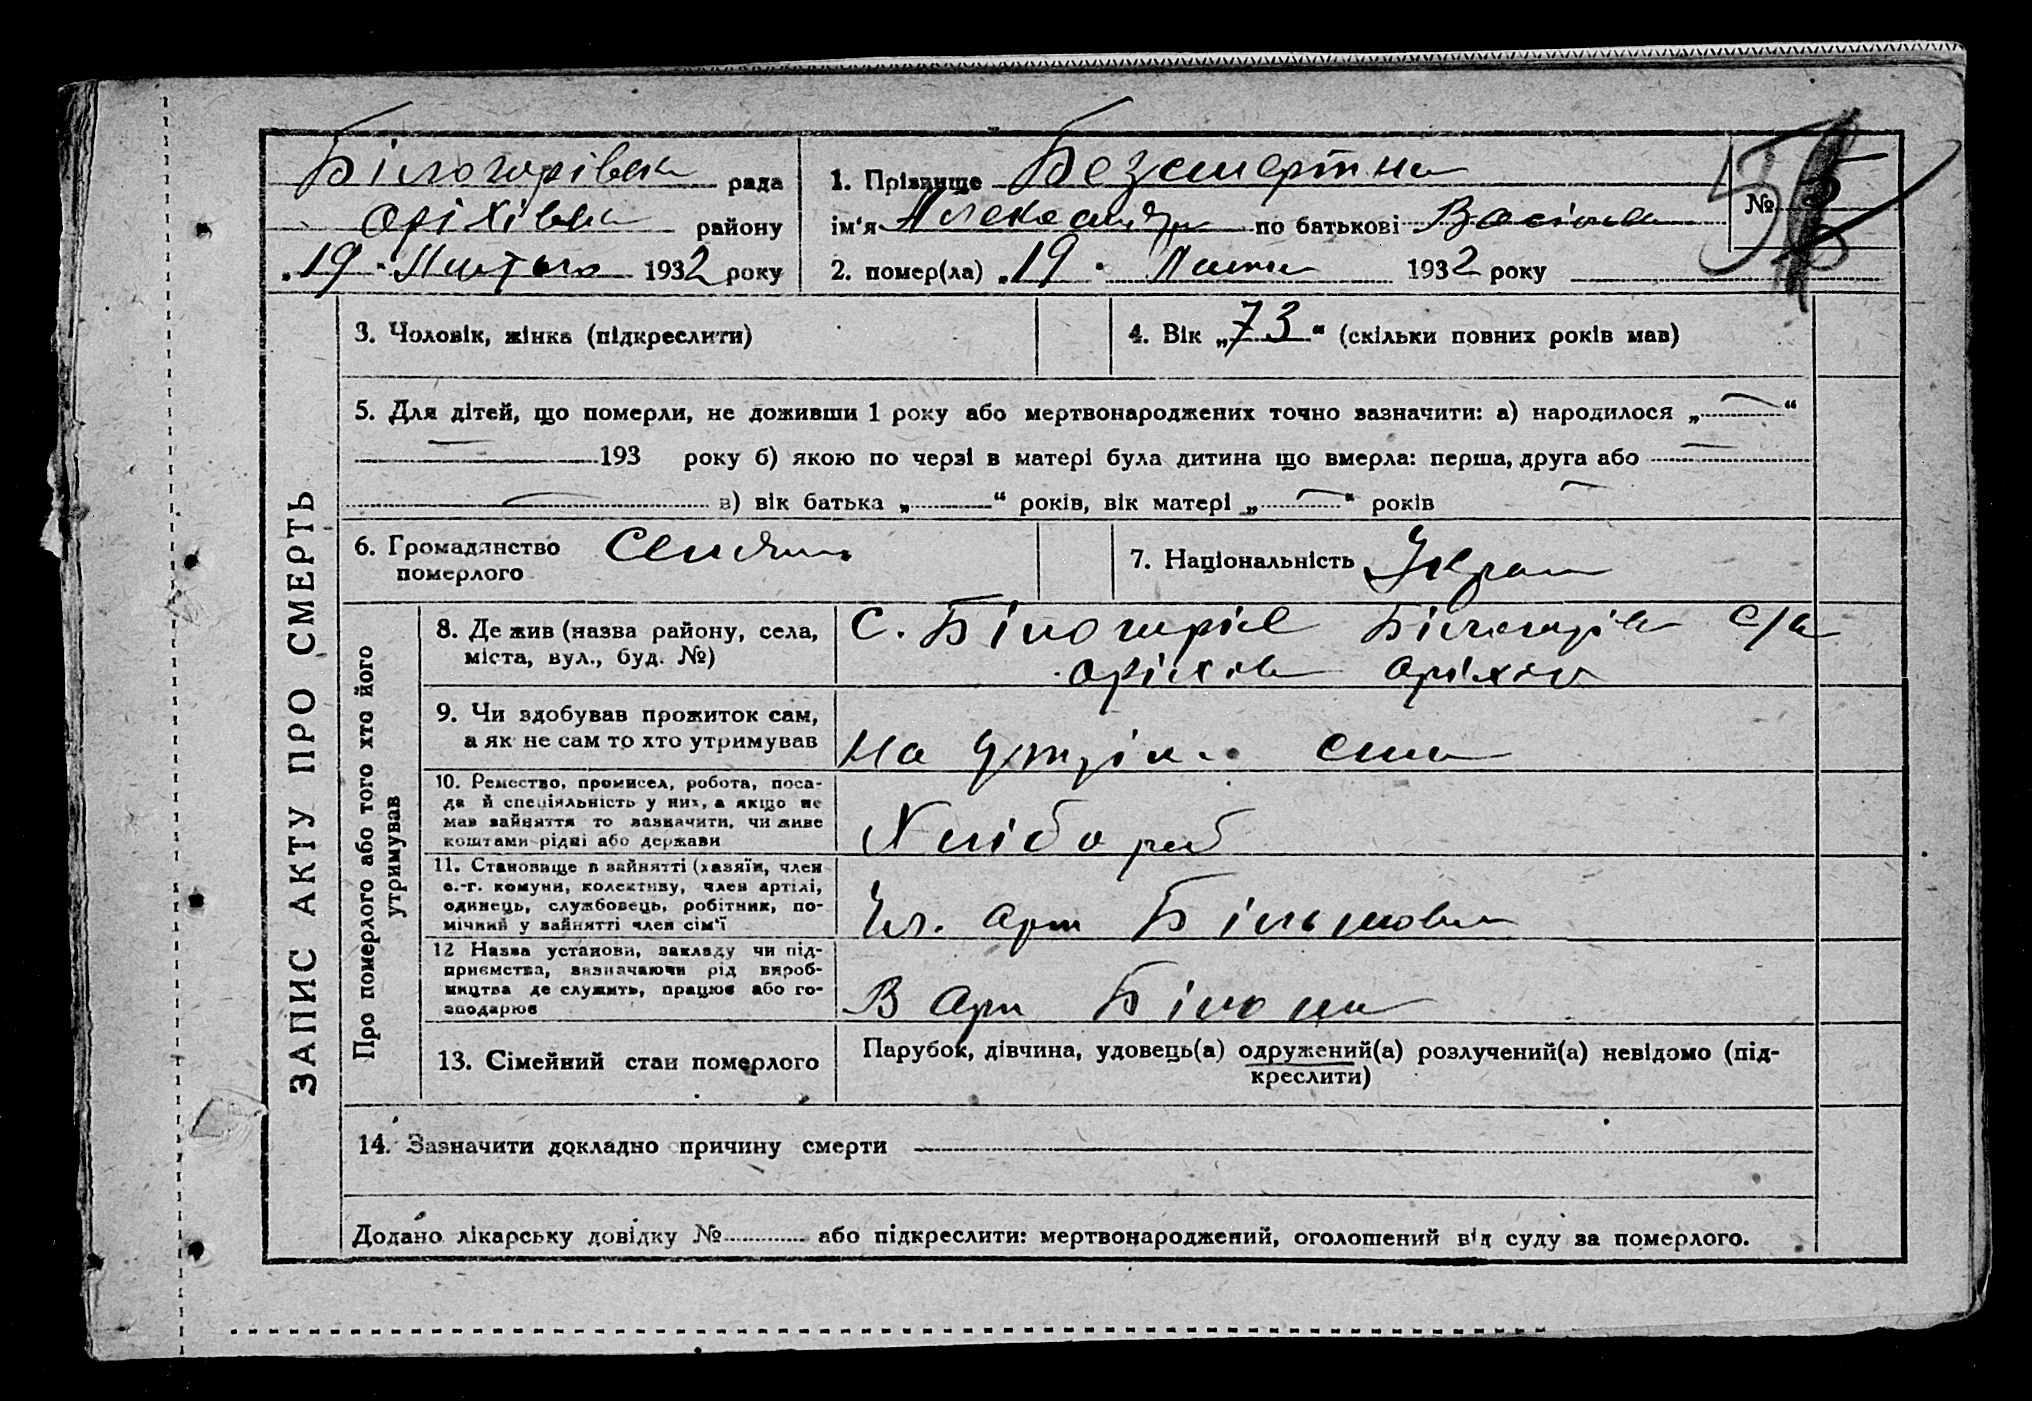 Білогорівка рада
Оріхівськ району
„19“ Лютого 1932 року
1. Прізвище Безсмертна
ім'я Александр по батькові Васільев
2. помер(ла) „19“ 1932 року
№
ЗАПИС АКТУ ПРО СМЕРТЬ
3. Чоловік, жінка (підкреслити)
4. Вік „73“ (скільки повних років мав)
5. Для дітей, що померли, не доживши 1 року або мертвонароджених точно зазначити: а) народилося „ “
193 року б) якою по черзі в матері була дитина що вмерла: перша, друга або
в) вік батька „ “ років, вік матері „ “ років
6. Громадянство
померлого
7. Національність Украл
Про померлого або того хто його
утримував
8. Де жив (назва району, села,
міста, вул., буд. №)
С. Білогорів Білогорів С/р
Оріхов Оріхов
9. Чи здобував прожиток сам,
а як не сам то хто утримував
На сина
10. Ремество, промисел, робота, поса-
да й спеціяльність у них, а якщо не
мав зайняття то зазначити, чи живе
коштами рідні або держави
Хлібороб
11. Становище в зайнятті (хазяїн, член
с.-г. комуни, колективу, член артілі,
одинець, службовець, робітник, по-
мічний у зайнятті член сім'ї
Чл. арт Більшовик
12 Назва установи, закладу чи під-
приємства, зазначаючи рід вироб-
ництва де служить, працює або го-
сподарює
В арт
13. Сімейний стан померлого
Парубок, дівчина, удовець(а) одружений(а) розлучений(а) невідомо (під-
креслити)
14. Зазначити докладно причину смерти
Додано лікарську довідку № або підкреслити: мертвонароджений, оголошений від суду за померлого.